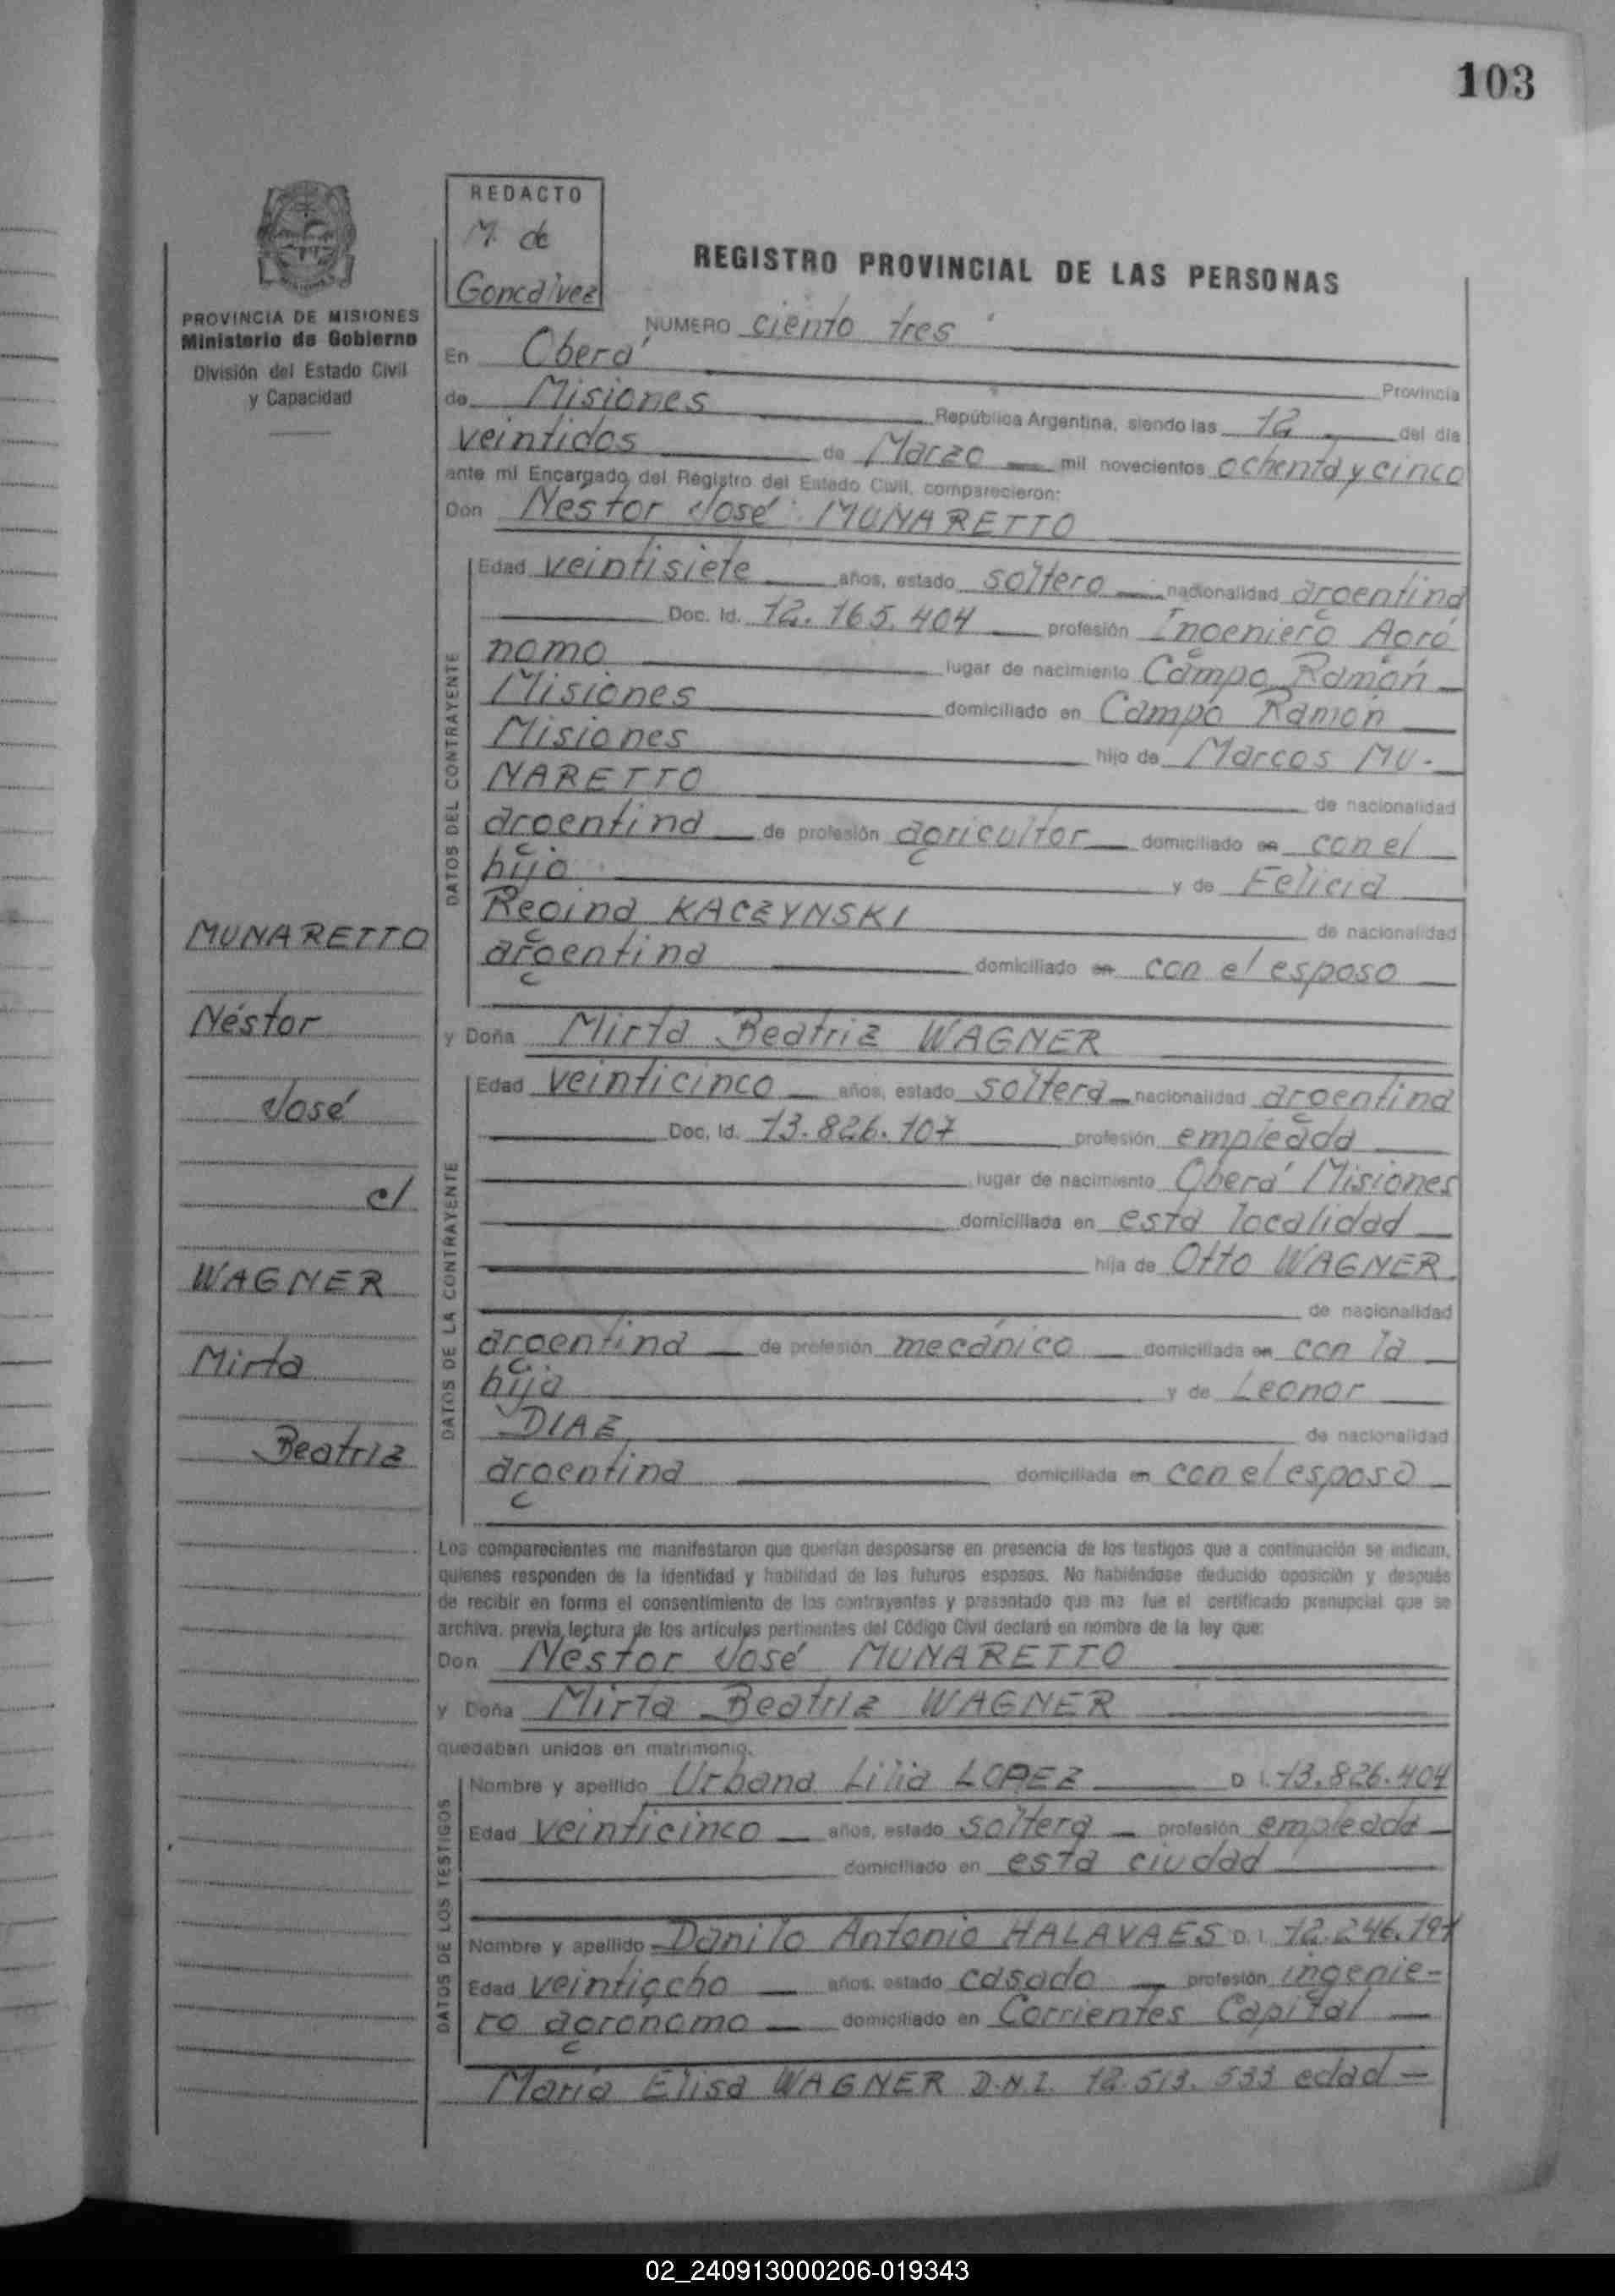 103
REDACTO
M. de
Goncalvez
REGISTRO PROVINCIAL DE LAS PERSONAS
PROVINCIA DE MISIONES
Ministerio de Gobierno
División del Estado Civil
y Capacidad
NUMERO ciento tres
En Oberá Provincia
de Misiones República Argentina, siendo las 12 del día
veintidos de Marzo mil novecientos ochenta y cinco
ante mi Encargado del Registro del Estado Civil, comparecieron:
Don Néstor José MUNARETTO
DATOS DEL CONTRAYENTE
Edad veintisiete años, estado soltero nacionalidad argentina
Doc. Id. 12.165.404 profesión Ingeniero Agró
nomo lugar de nacimiento Campo Ramón
Misiones domiciliado en Campo Ramón
Misiones hijo de Marcos MU-
NARETTO de nacionalidad
argentina de profesión agricultor domiciliado en con el
hijo y de Felicia
Regina KACZYNSKI de nacionalidad
argentina domiciliado en con el esposo
y Doña Mirta Beatriz WAGNER
DATOS DE LA CONTRAYENTE
Edad veinticinco años, estado soltera nacionalidad argentina
Doc. Id. 13.826.107 profesión empleada
lugar de nacimiento Oberá Misiones
domiciliada en esta localidad
hija de Otto WAGNER
de nacionalidad
argentina de profesión mecánico domiciliada en con la
hija y de Leonor
DIAZ de nacionalidad
argentina domiciliada en con el esposo
MUNARETTO
Néstor
José
c/
WAGNER
Mirta
Beatriz
Los comparecientes me manifestaron que querían desposarse en presencia de los testigos que a continuación se indican,
quienes responden de la identidad y habilidad de los futuros esposos. No habiéndose deducido oposición y después
de recibir en forma el consentimiento de los contrayentes y presentado que me fue el certificado prenupcial que se
archiva, previa lectura de los artículos pertinentes del Código Civil declaré en nombre de la ley que:
Don Néstor José MUNARETTO
y Doña Mirta Beatriz WAGNER
quedaban unidos en matrimonio.
DATOS DE LOS TESTIGOS
Nombre y apellido Urbana Lilia LOPEZ D I. 13.826.404
Edad veinticinco años, estado soltera profesión empleada
domiciliado en esta ciudad
Nombre y apellido Danilo Antonio HALAVAES D. I. 12.246.191
Edad veintiocho años, estado casado profesión ingenie-
ro agronomo domiciliado en Corrientes Capital
María Elisa WAGNER D.N.I. 12.513.533 edad
02_240913000206-019343